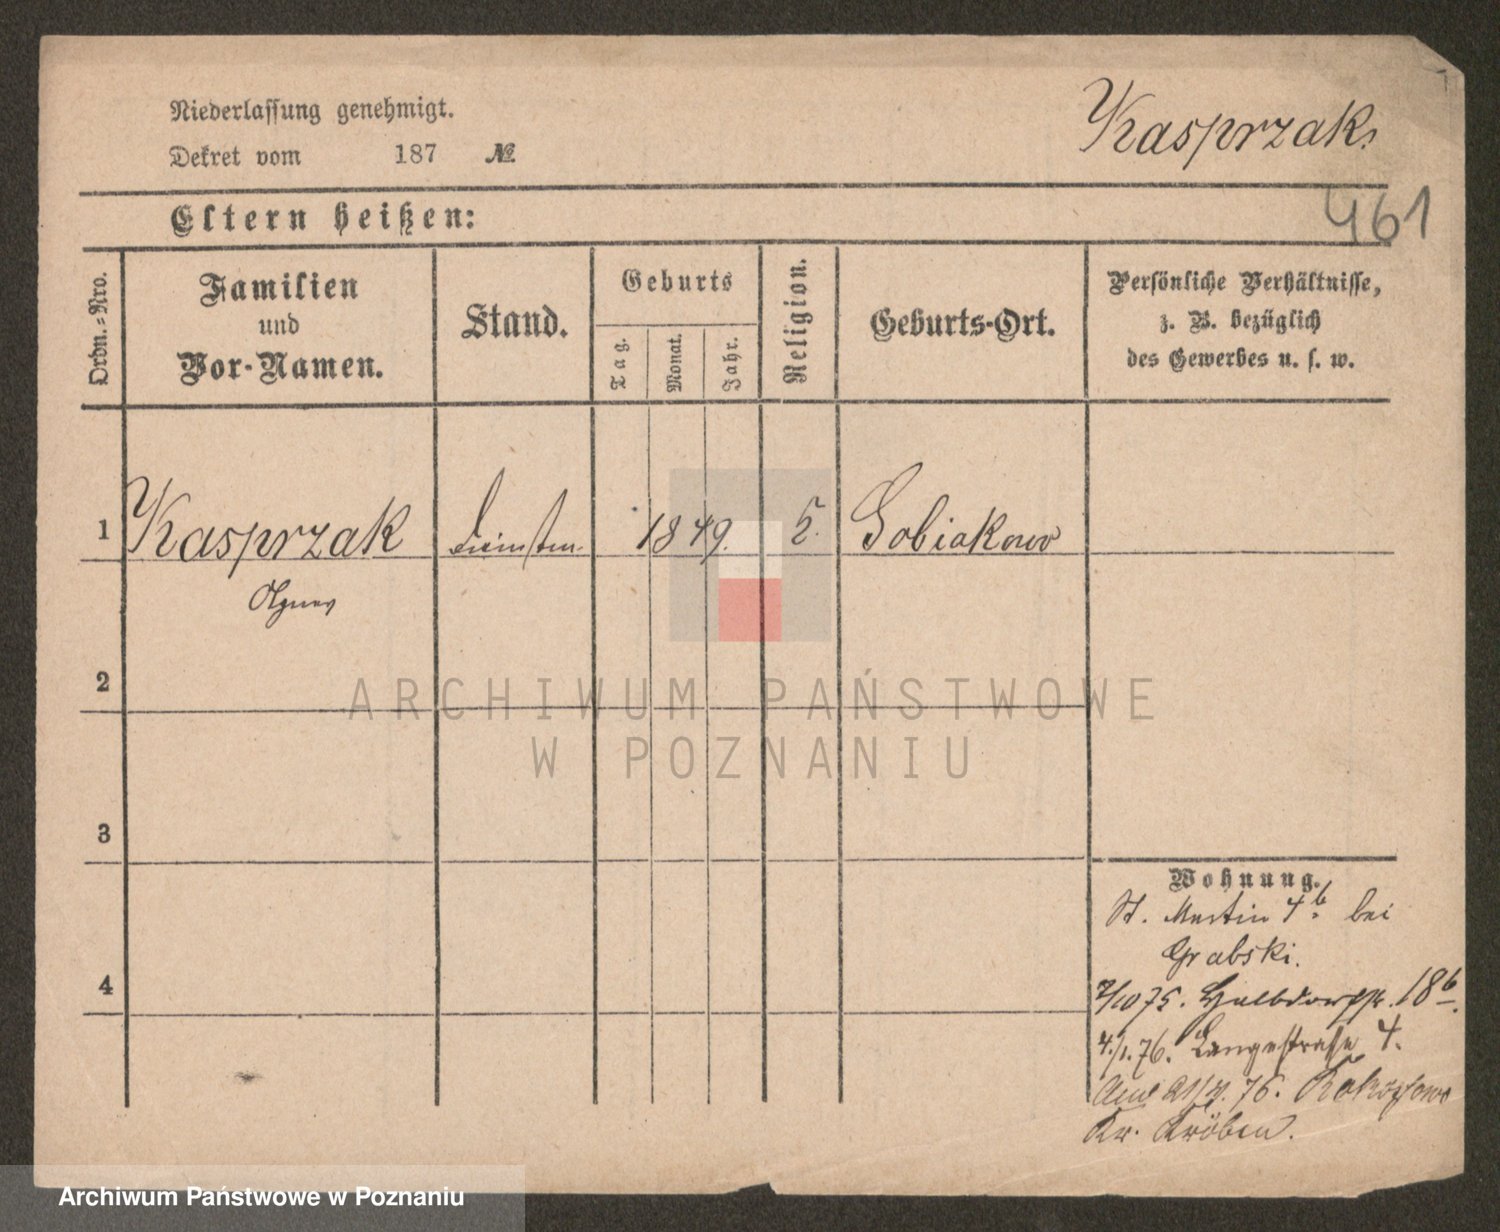 Kasprzak
Niederlassung genehmigt.
Dekret vom 187 №
461
Eltern heißen:
Ordn.-Nro.
Familien
und
Vor-Namen.
Stand.
Geburts
Tag.
Monat.
Jahr.
Religion.
Geburts-Ort.
Persönliche Verhältnisse,
z. B. bezüglich
des Gewerbes u. s. w.
1 Kasprzak 1849. Gobiakowo
Agnes
2
3
4
Wohnung.
St. Martin 4b bei
Grabski.
7/10 75. Halbdorfstr. 18b.
4./1. 76. Langestraße 4.
76.
Kr. Kröben.
ARCHIWUM PAŃSTWOWE
W POZNANIU
Archiwum Państwowe w Poznaniu